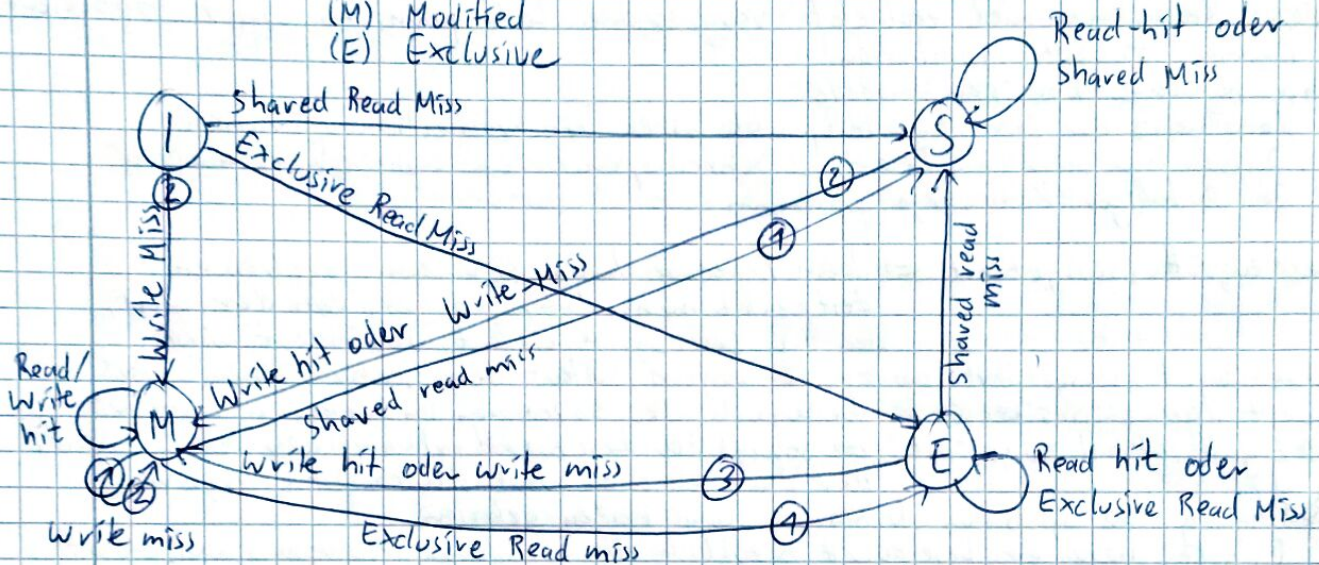 (M) Modified
(E) Exclusive
Read-hit oder
Shared Miss
Shared Read Miss
I
S
Exclusive Read Miss
2
2
1
Write Miss
Write hit oder Write-Miss
Shared read miss
Shared read
miss
Read/
Write
hit
M
E
Write hit oder write miss
3
Read hit oder
Exclusive Read Miss
1
2
Write miss
Exclusive Read miss
1